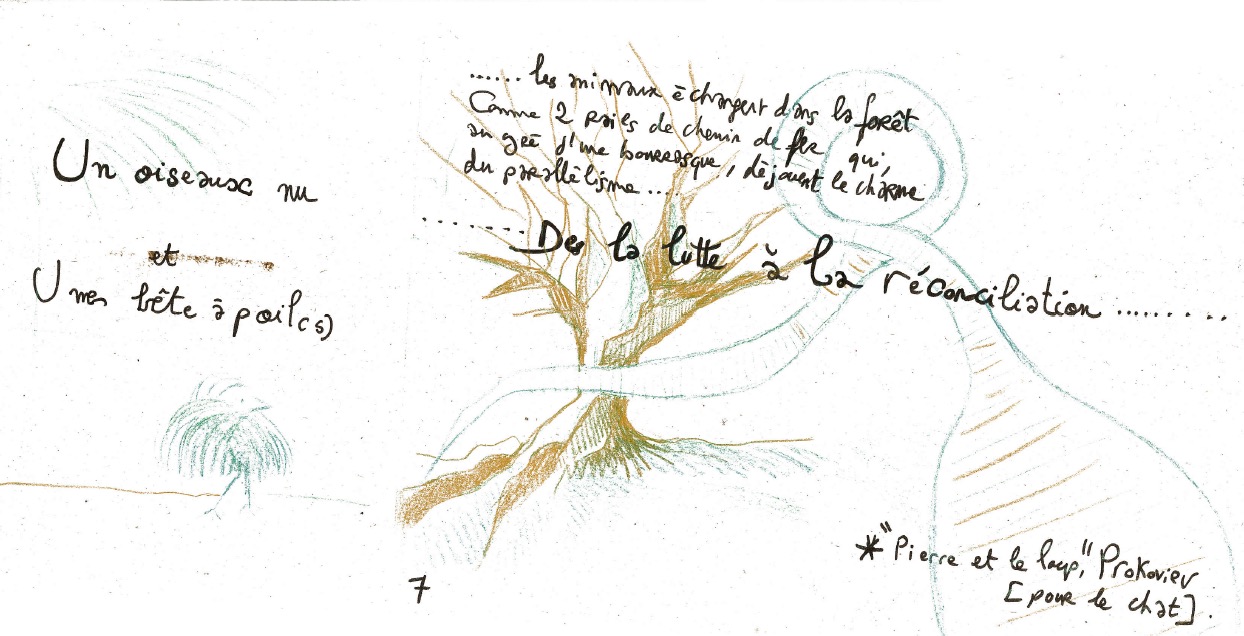 Un oiseaux nu
et
Unes bête à poil(s)
...... les animaux échangent dans la forêt
Comme 2 rails de chemin de fer qui,
au gré d'une bourrasque, déjouent le charme
du parallèlisme ....
....... De la lutte à la réconciliation .........
7
*"Pierre et le loup," Prokoviev
[pour le chat].